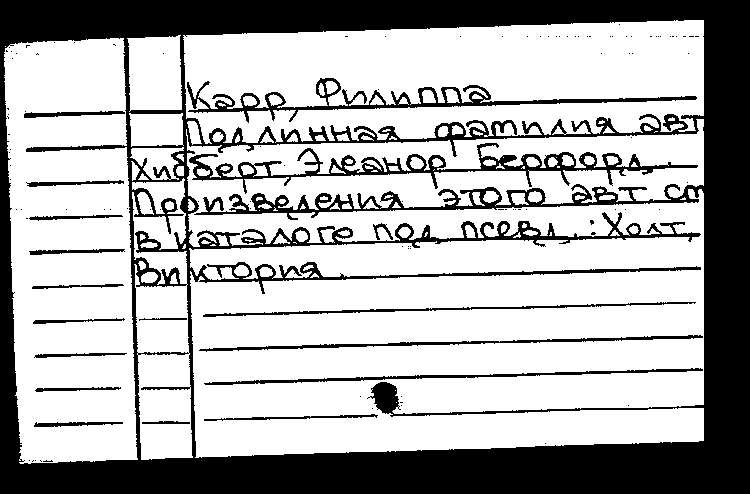 Карр, Филиппа
Подлинная фамилия авт
Хибберт, Элеанор Берфорд.
Произведения этого авт. см
в каталоге под псевд.: Холт,
Виктория.